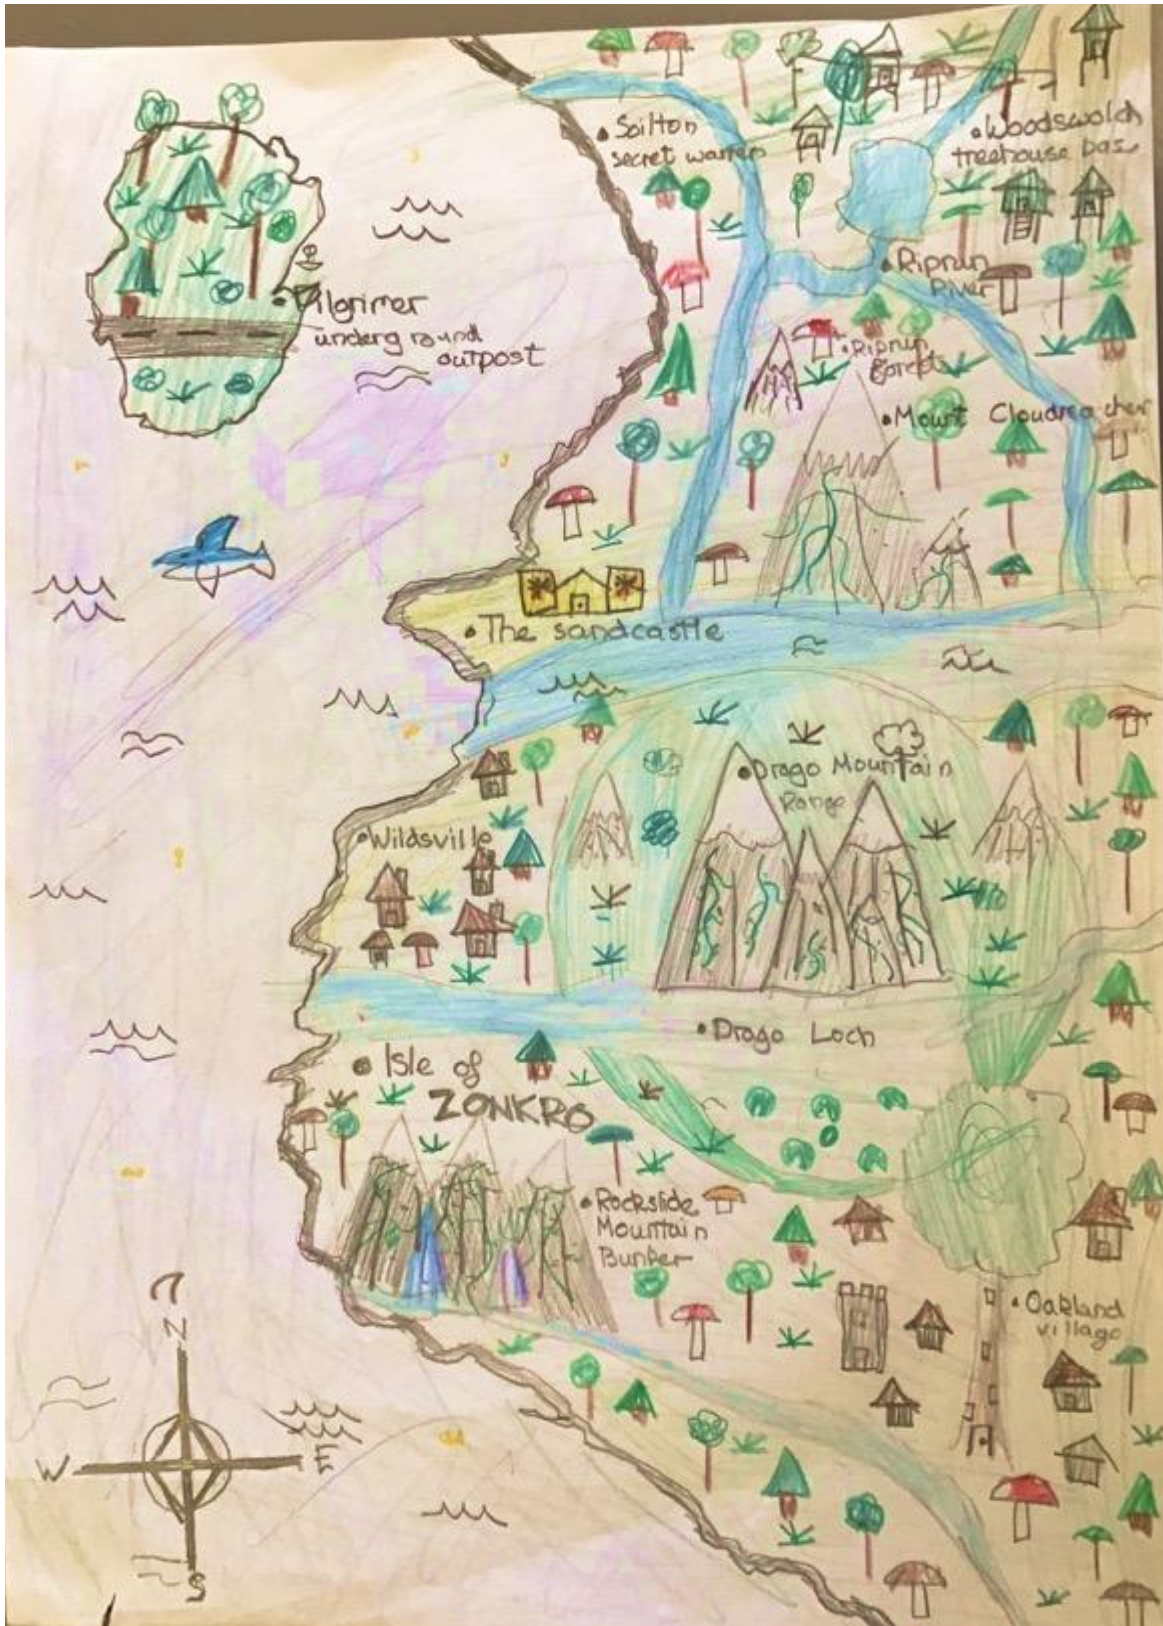 Soilton
secret warren
Woodswolch
treehouse bas
Pilgrimer
underground
outpost
Riprun
River
Riprun
forest
Mount Cloudreacher
The sandcastle
Drago Mountain
Range
Wildsville
Drago Loch
Isle of
ZONKRO
Rockslide
Mountain
Bunker
Oakland
village
N
W
E
S